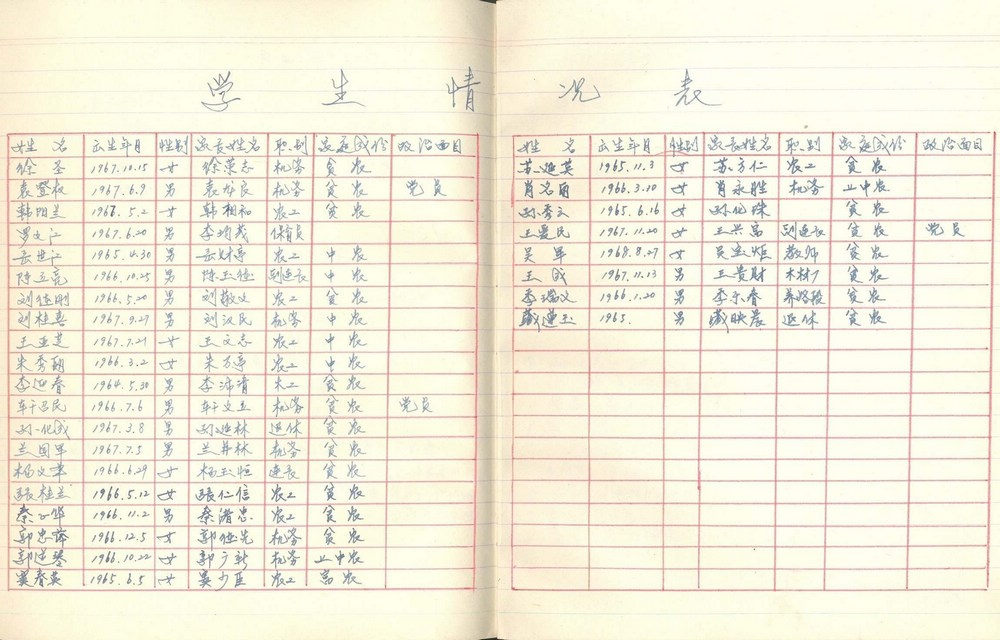 学生情况表
姓名 出生年月 性别 家长姓名 职别 家庭成份 政治面目
徐圣 1967.10.15 女 徐荣志 机务 贫农
袁 1967.6.9 男 袁 机务 贫农 党员
韩阳兰 1966.5.2 女 韩相和 农工 贫农
罗文江 1967.6.20 男 李均茂 保育员
岳世江 1965.4.30 男 岳财亭 农工 中农
陈立亮 1966.10.25 男 陈玉 副连长 中农
刘继刚 1966.5.20 男 刘敬文 农工 贫农
刘桂喜 1967.9.27 男 刘汉民 机务 中农
王亚芝 1967.7.21 女 王文志 农工 中农
朱秀丽 1966.3.2 女 朱万亭 农工 中农
李迎春 1964.5.30 男 李 清 木工 贫农
轩吕民 1966.7.6 男 轩文玉 机务 贫农 党员
孙化成 1967.3.8 男 孙延林 退休 贫农
兰国军 1967.7.5 男 兰井林 机务 贫农
杨文苹 1966.6.29 女 杨玉恒 连长 贫农
张桂兰 1966.5.12 女 张仁信 农工 贫农
秦 华 1966.11.2 男 秦 忠 农工 贫农
郭忠 1966.12.5 女 郭 先 机务 贫农
郭连琴 1966.10.22 女 郭广新 机务 上中农
窦春英 1965.6.5 女 窦少臣 农工 富农
姓名 出生年月 性别 家长姓名 职别 家庭成份 政治面目
苏延英 1965.11.3 女 苏方仁 农工 贫农
肖名 1966.3.20 女 肖永胜 机务 上中农
孙秀文 1965.6.16 女 孙化 贫农
王爱民 1967.11.20 女 王兴富 副连长 贫农 党员
吴军 1968.8.27 女 吴 教师 贫农
王成 1967.11.13 男 王贵财 木材厂 贫农
李瑞文 1966.1.20 男 李永春 养路段 贫农
臧莲玉 1965. 男 臧映晨 退休 贫农